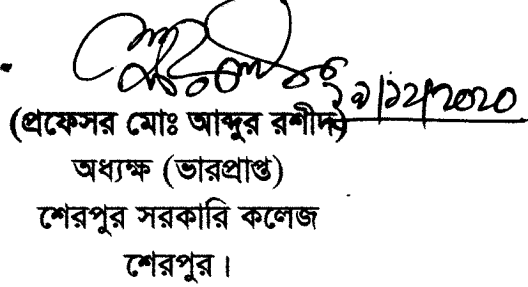 ২৯/১২/২০২০
(প্রফেসর মোঃ আব্দুর রশীদ)
অধ্যক্ষ (ভারপ্রাপ্ত)
শেরপুর সরকারি কলেজ
শেরপুর।